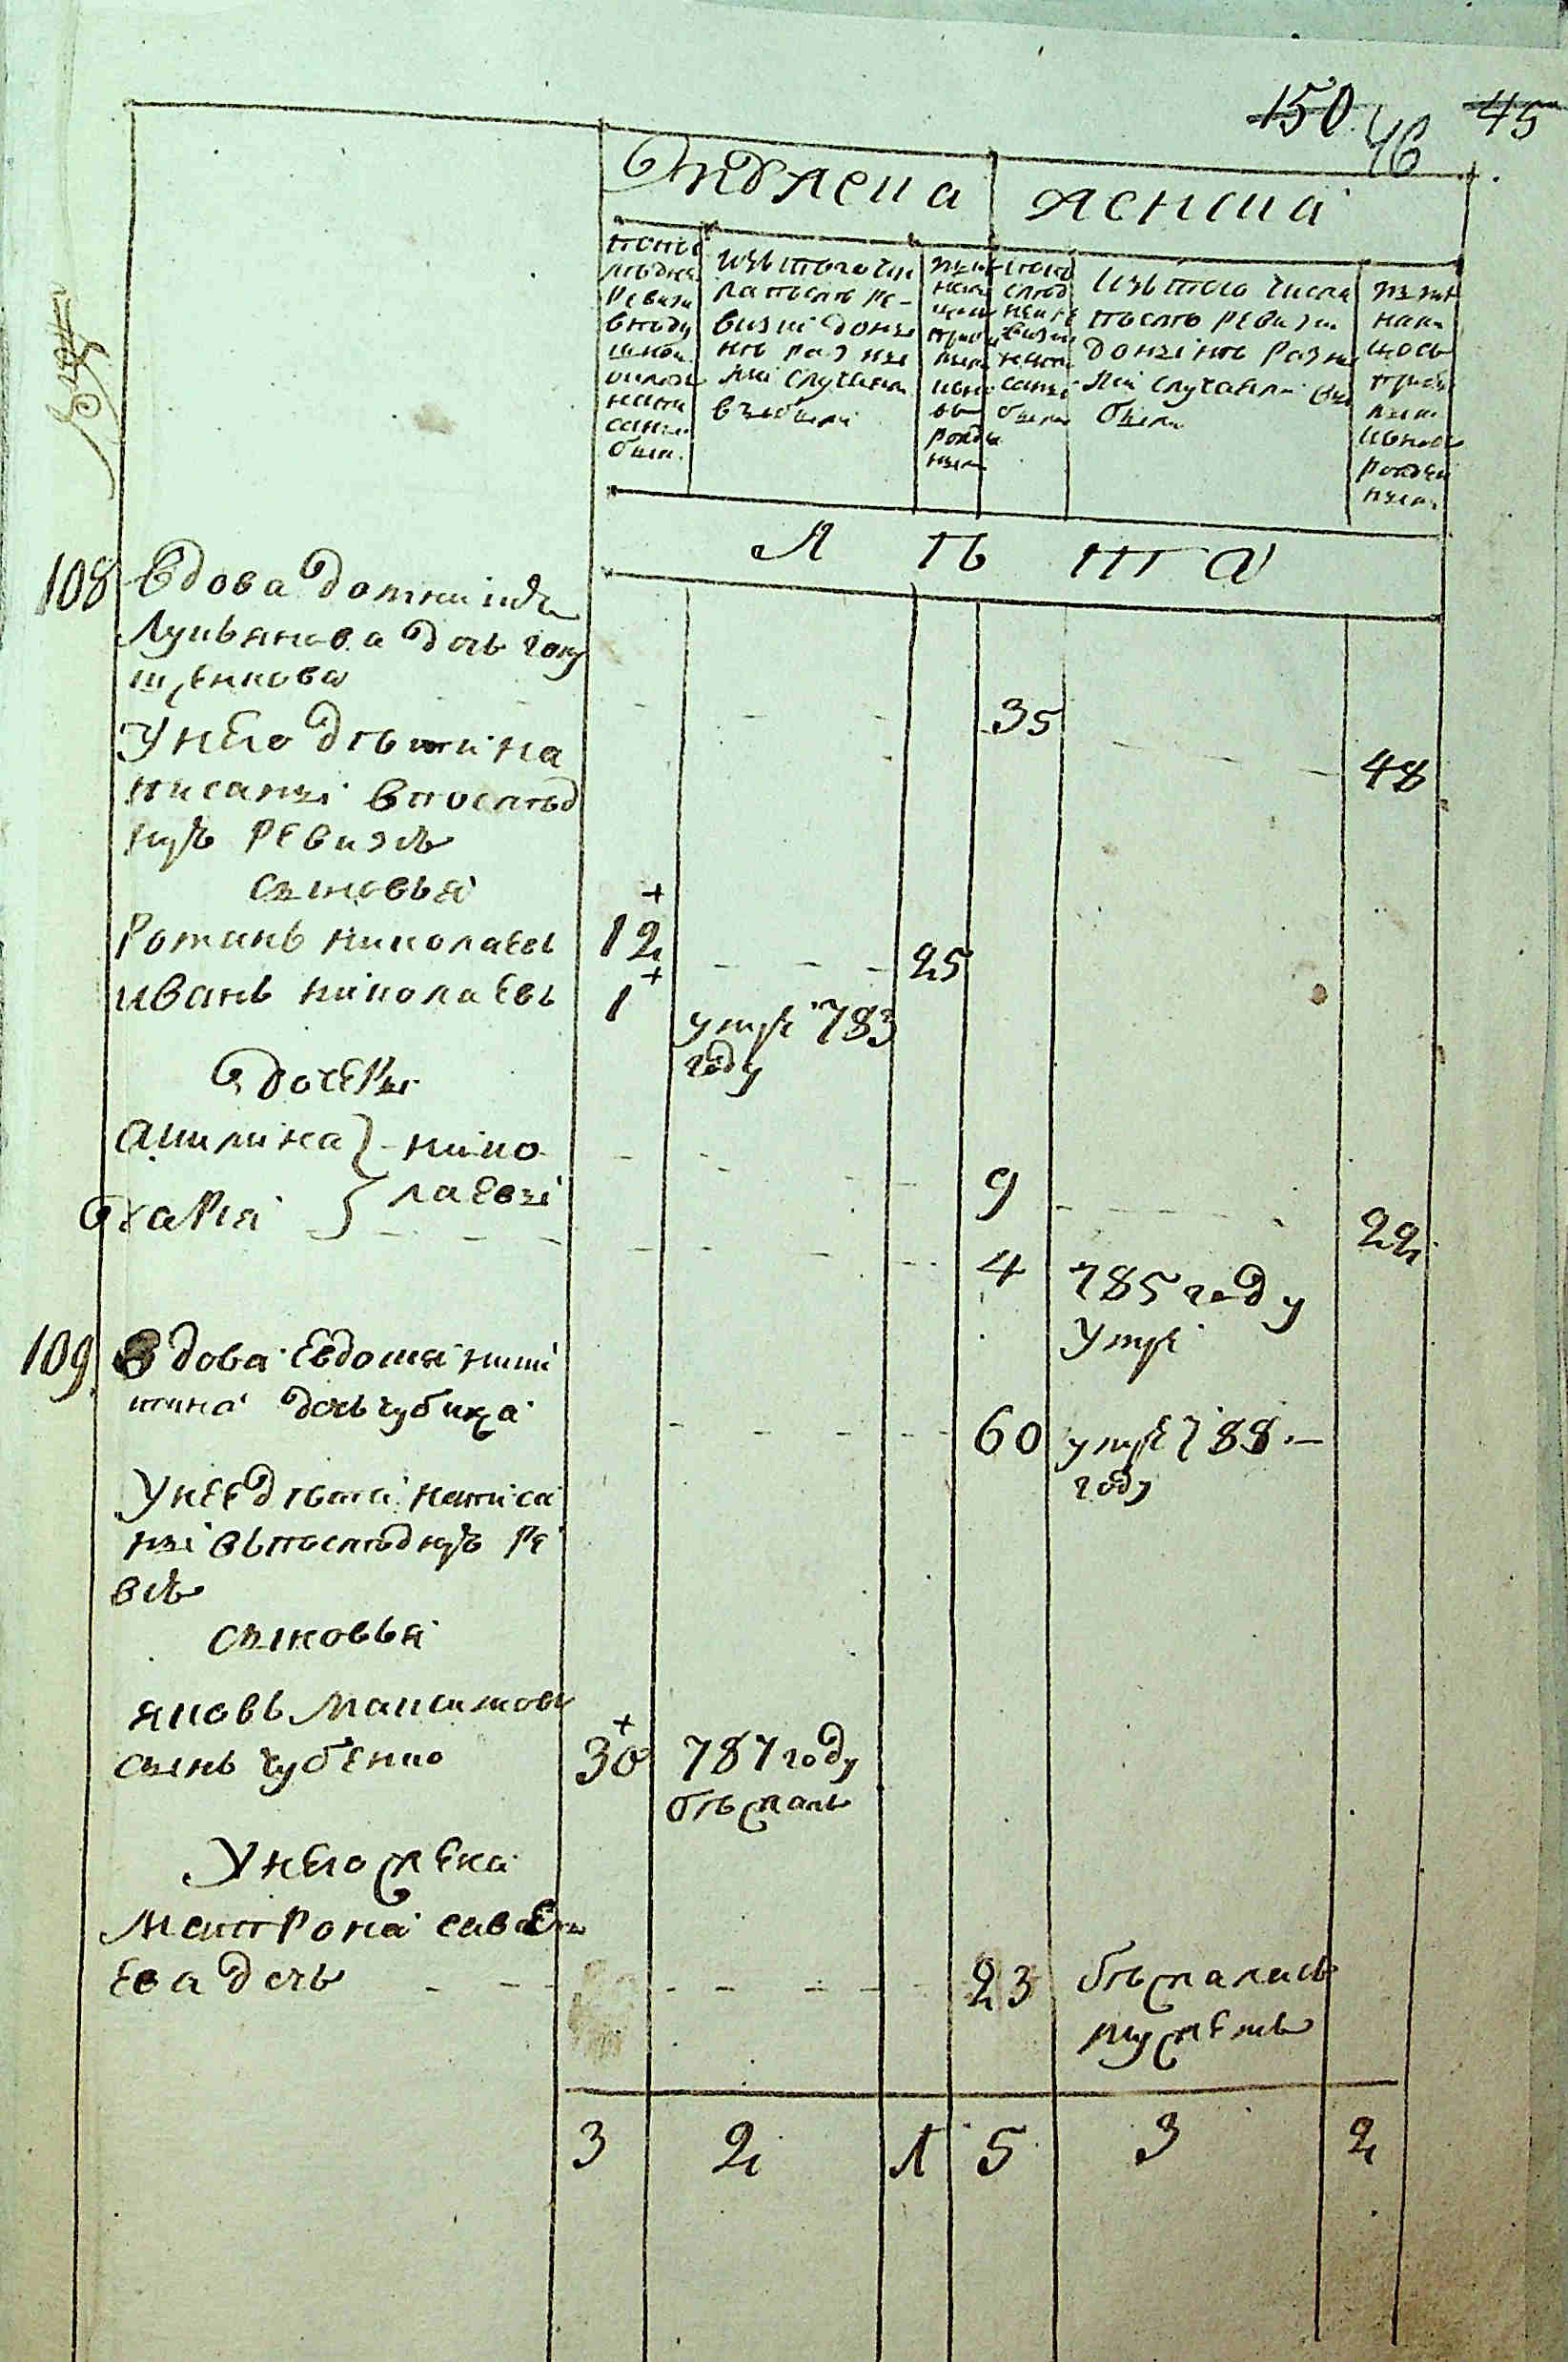 150 46 45
Мужеска женска
после
дней
ревизи
в коду
написа
ны
были.
изъ того чи
ла после ре-
визии доны
нѣ разны
ми случаями
выбыли
ныне
на ли
цо съ
прибы
лыми
и вно
въ
рожде
ными
после
дней ре
визии
написаные
были
изъ того числа
после ревизии
донынѣ разны
ми случаями вы
были
ныне
на ли
цо съ
прибы
лыми
и вновь
рожден
ными
Л ѣ т а
108 Вдова Домникия
Лукьянова дочь
щенкова
35 48
У нее дети на
писаны в послѣд
нуъ ревизiъ
сыновья
Романъ николаевъ 12 25
иванъ николаевъ 1 умре 783
году
дочери
акилина } нико
лаевы 9 22
дарiя 4 785 году
умре
109 Вдова Евдокия ники
тина дочь чубиха 60 умре 788
году
У нее дети написа
ны въ последнуъ ре
вiъ
сыновья
яковъ Максимовъ
сынъ чубенко 30 787 году
бѣжалъ
У него жена
Матрона савель
ева дочь 23 бѣжала съ
мужемъ
3 2 1 5 3 2